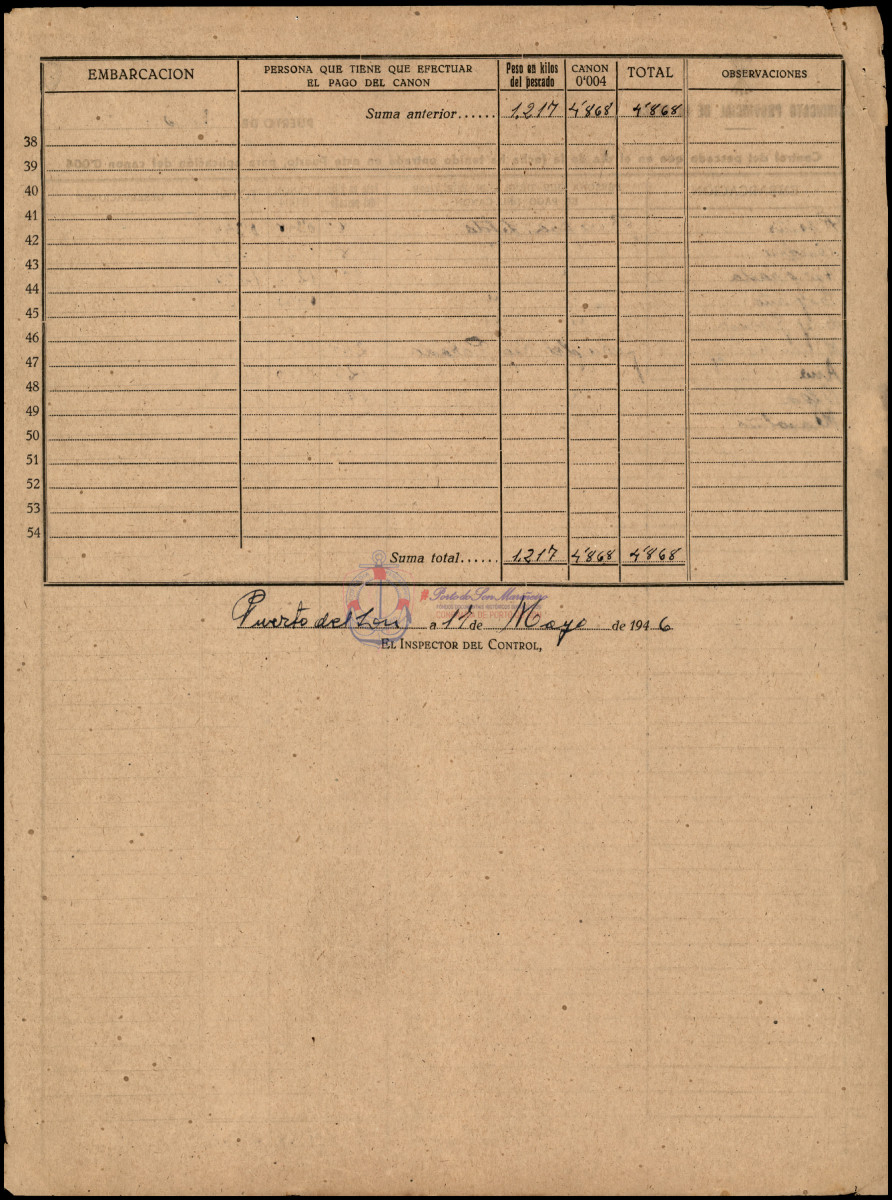 EMBARCACION PERSONA QUE TIENE QUE EFECTUAR EL PAGO DEL CANON Peso en kilos del pescado CANON 0'004 TOTAL OBSERVACIONES
Suma anterior...... 1.217 4'868 4'868
38
39
40
41
42
43
44
45
46
47
48
49
50
51
52
53
54
Suma total...... 1.217 4'868 4'868
Porto do Son Mariñeiro
Puerto del Son a de Mayo de 1946
EL INSPECTOR DEL CONTROL,